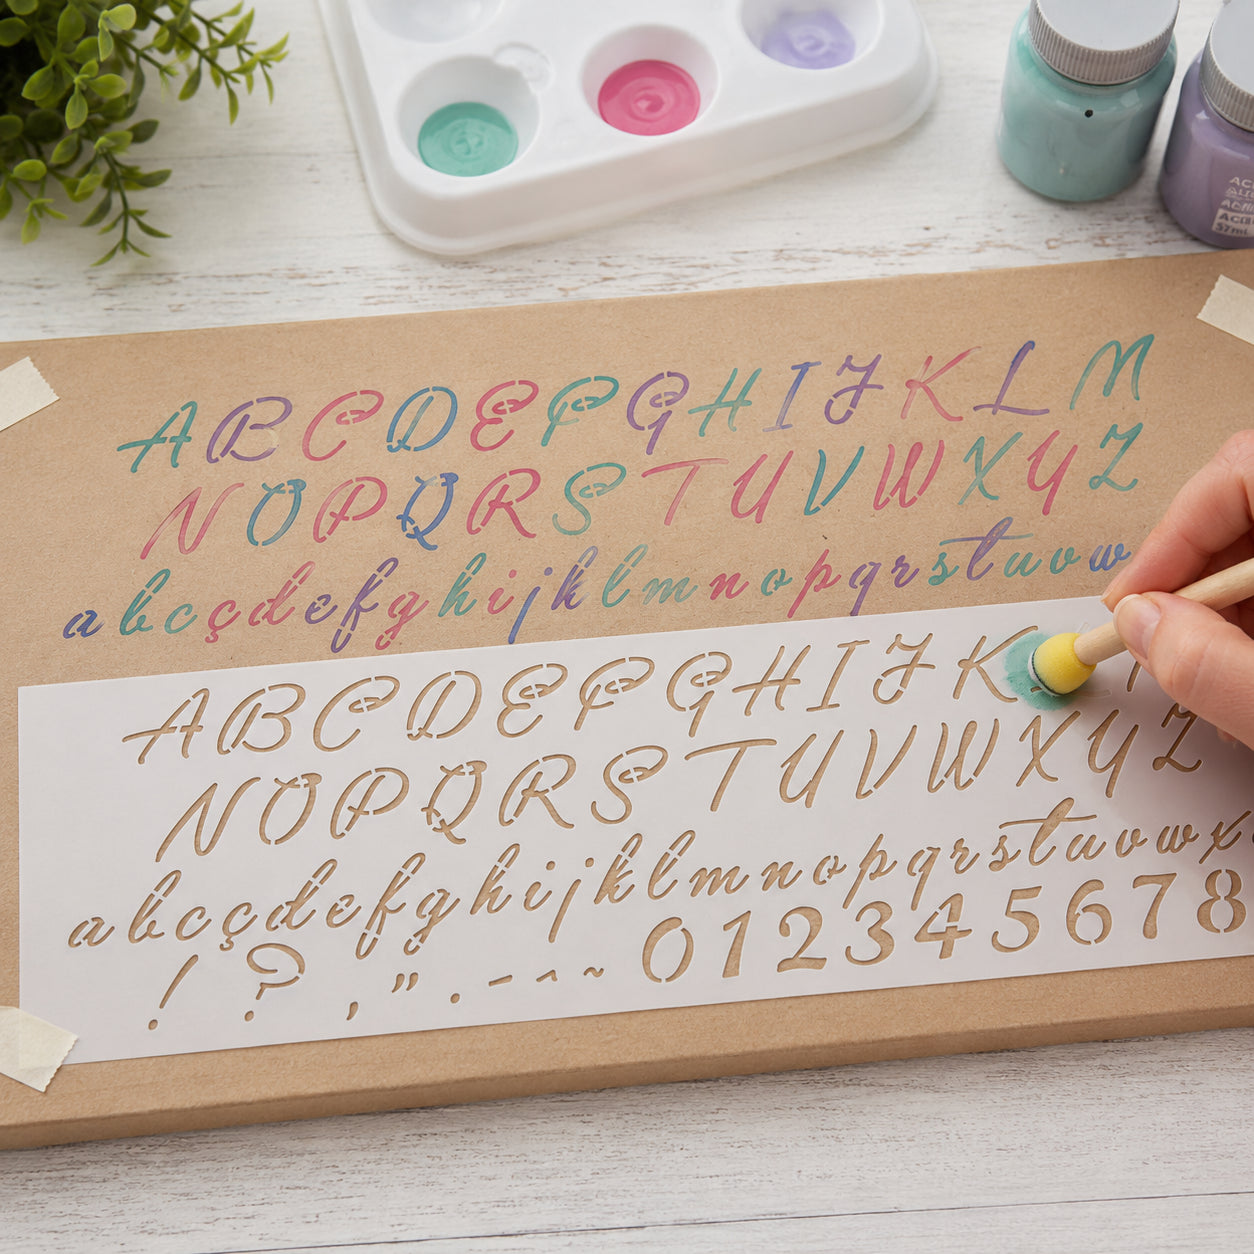 ABCDEFGHIJKLM
NOPQRSTUVWXYZ
abcçdefghijklmnopqrstuvw
ABCDEFGHIJK
NOPQRSTUVWXYZ
abcçdefghijklmnopqrstuvwx
! ? , " . - ^ ~ 012345678